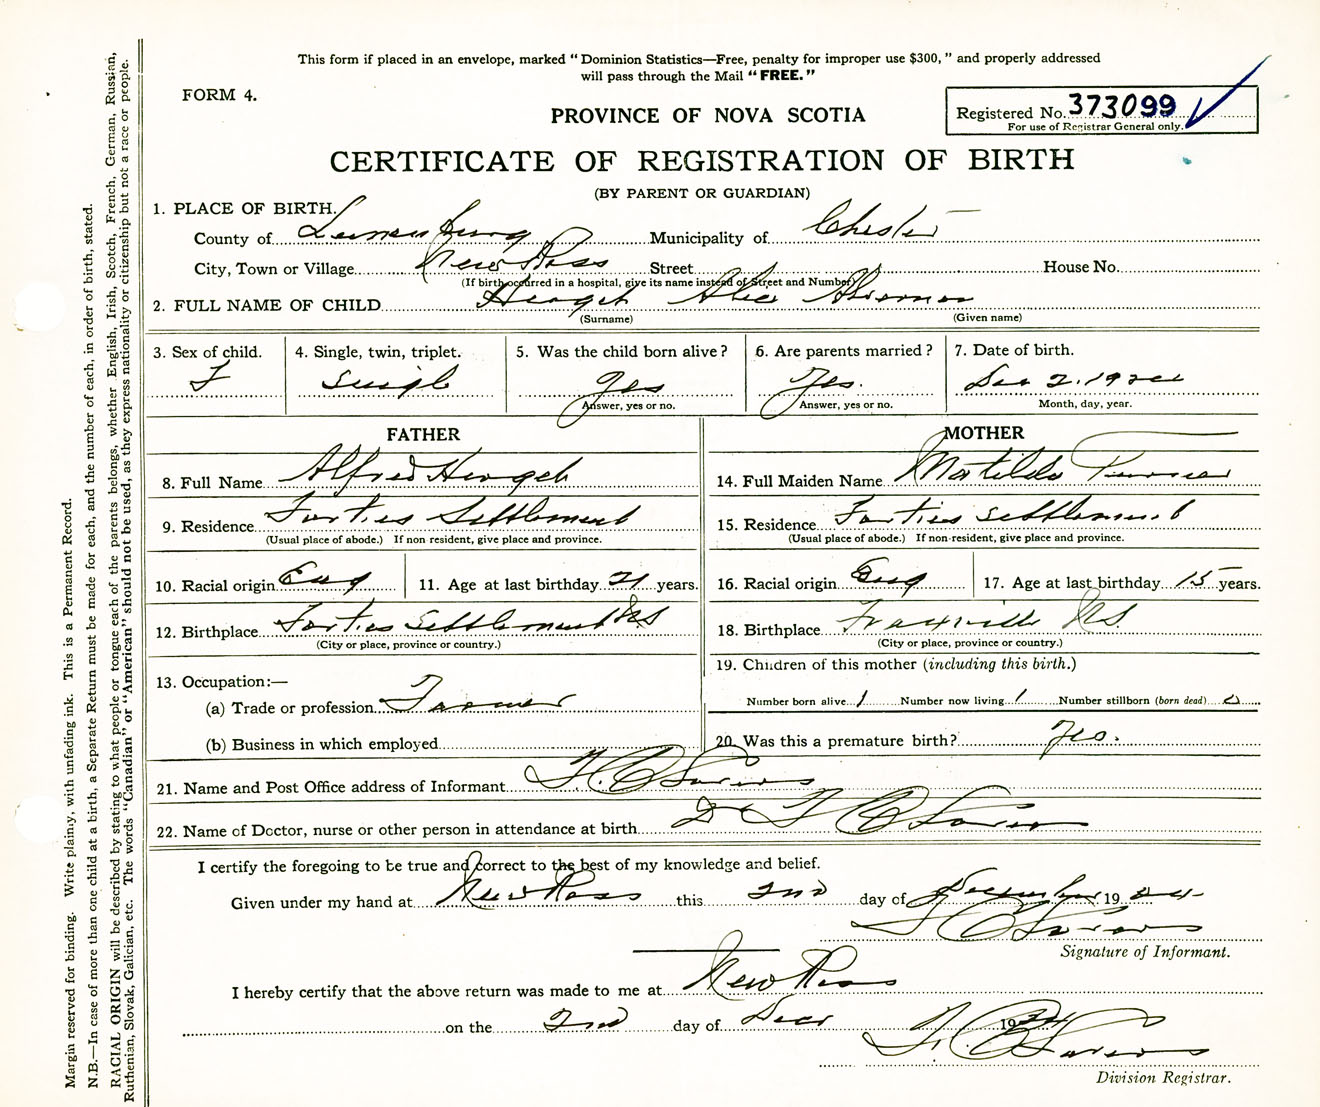 This form if placed in an envelope, marked "Dominion Statistics—Free, penalty for improper use $300," and properly addressed
will pass through the Mail "FREE."
FORM 4.
PROVINCE OF NOVA SCOTIA
Registered No. 373099
For use of Registrar General only.
CERTIFICATE OF REGISTRATION OF BIRTH
(BY PARENT OR GUARDIAN)
1. PLACE OF BIRTH.
County of Lunenburg Municipality of Chester
City, Town or Village New Ross Street House No.
(If birth occurred in a hospital, give its name instead of Street and Number)
2. FULL NAME OF CHILD
(Surname) (Given name)
3. Sex of child. 4. Single, twin, triplet. 5. Was the child born alive? 6. Are parents married? 7. Date of birth.
F Single Yes Yes. Dec 2. 19
Answer, yes or no. Answer, yes or no. Month, day, year.
FATHER MOTHER
8. Full Name Alfred 14. Full Maiden Name Matilda
9. Residence Forties Settlement 15. Residence Forties Settlement
(Usual place of abode.) If non resident, give place and province. (Usual place of abode.) If non-resident, give place and province.
10. Racial origin Eng 11. Age at last birthday 21 years. 16. Racial origin Eng 17. Age at last birthday 15 years.
12. Birthplace Forties Settlement NS 18. Birthplace Fraxville NS
(City or place, province or country.) (City or place, province or country.)
13. Occupation:— 19. Children of this mother (including this birth.)
(a) Trade or profession Farmer Number born alive 1 Number now living 1 Number stillborn (born dead) 0
(b) Business in which employed 20. Was this a premature birth? Yes.
21. Name and Post Office address of Informant
22. Name of Doctor, nurse or other person in attendance at birth Dr
I certify the foregoing to be true and correct to the best of my knowledge and belief.
Given under my hand at New Ross this 2nd day of December 19
Signature of Informant.
I hereby certify that the above return was made to me at New Ross
on the 2nd day of Dec 19
Division Registrar.
Margin reserved for binding. Write plainly, with unfading ink. This is a Permanent Record.
N.B.—In case of more than one child at a birth, a Separate Return must be made for each, and the number of each, in order of birth, stated.
RACIAL ORIGIN will be described by stating to what people or tongue each of the parents belongs, whether English, Irish, Scotch, French, German, Russian,
Ruthenian, Slovak, Galician, etc. The words "Canadian" or "American" should not be used, as they express nationality or citizenship but not a race or people.